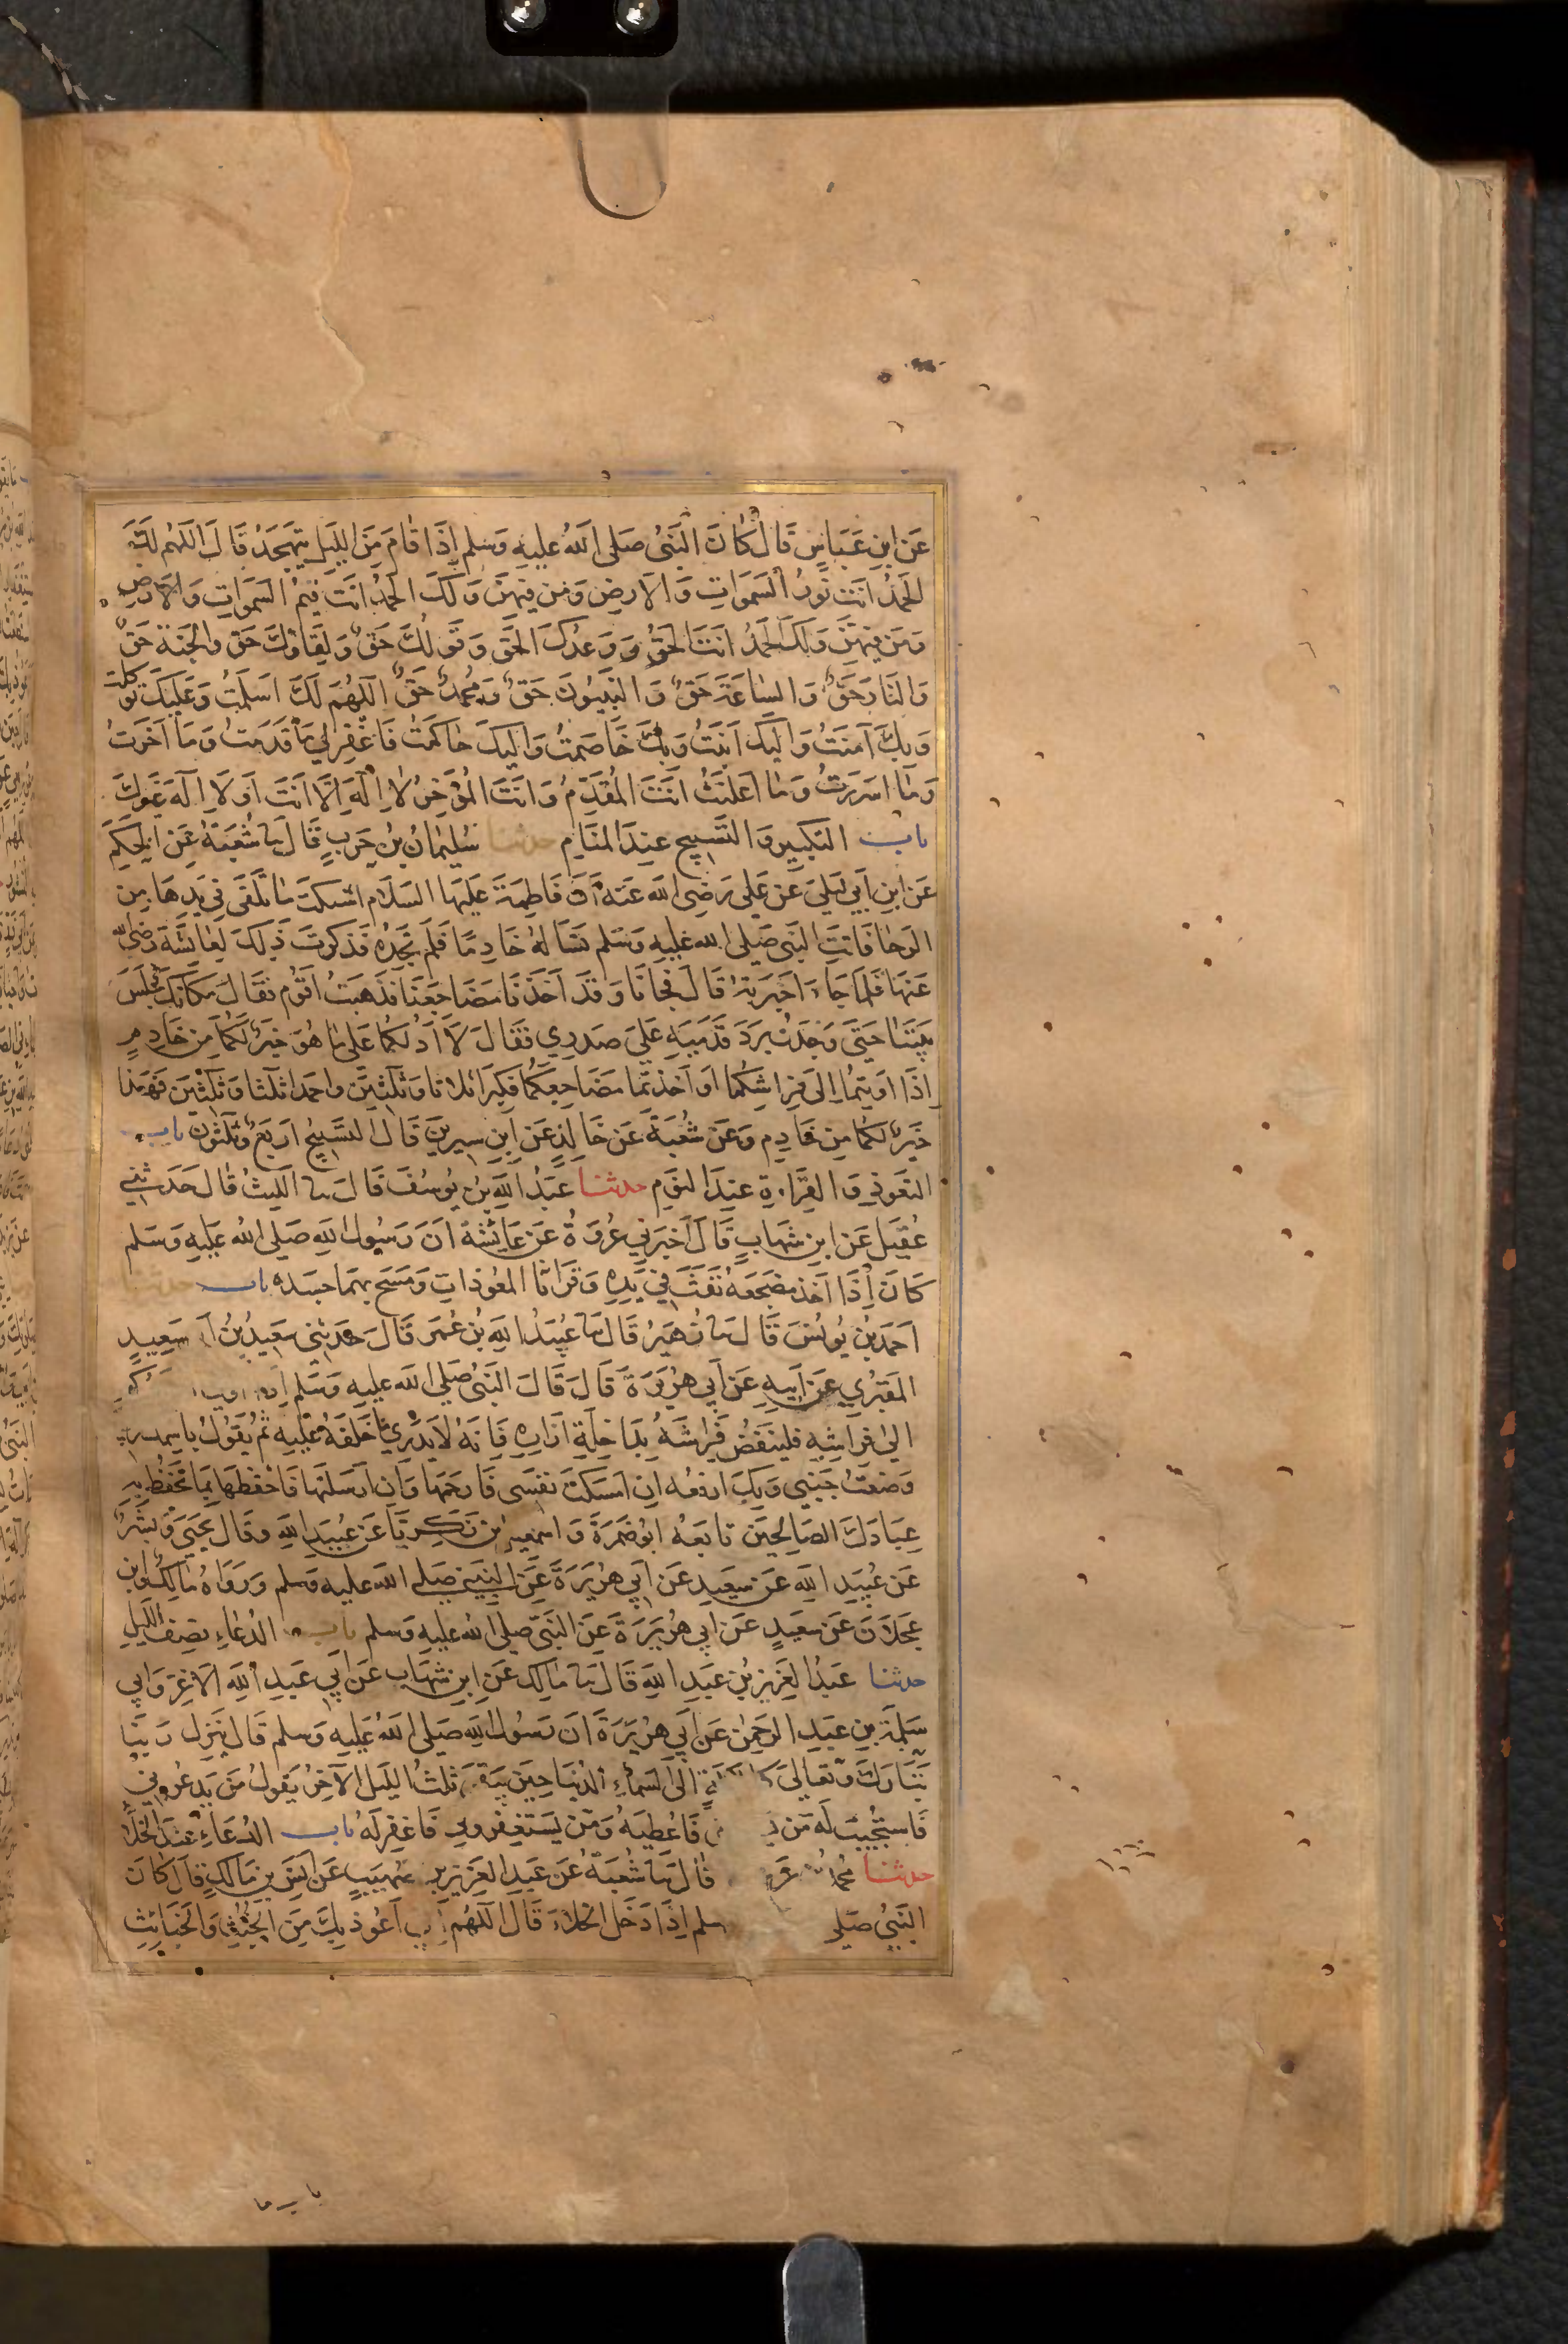 عَنِ ابنِ عَبَاسٍ قَالَ كَانَ النَبيُ صَلى اللهُ عليهِ وَسلم اِذَا قَامَ مِنَ الليل يتهَجَدُ قَالَ اللهُم لَكَ
الحَمدُ انتَ نُورُ السَمَوَاتِ وَالارضِ وَمَن فيهنَ وَلَكَ الحمدُ انتَ قيمُ السَموَاتِ وَالارضِ
وَمَن فيهِنَ وَلَكَ الحَمدُ انتَ الحَقُ وَوَعدُكَ الحَق وَقَولُكَ حَقٌ وَلِقَاؤكَ حَق وَالجَنة حَقٌ
وَالنَارُ حَقٌ وَالسَاعَة حَقٌ وَالنَبيُونَ حَقٌ وَمُحمدٌ حَقٌ اللهُمَ لَكَ اَسلمتُ وَعَلَيكَ توكلت
وَبِكَ آمنتُ وَاليكَ اَنَبتُ وَبِكَ خَاصَمتُ وَاِليكَ حَاكمتُ فَاغفِر لي مَا قَدمتُ وَمَا اَخرتُ
وَمَا اسرَرتُ وَمَا اَعلَنتُ اَنتَ المُقَدِمُ وَانتَ المُؤَخِرُ لا اِلهَ اِلّا اَنتَ اَو لَا اِلَهَ غَيركَ
باب التَكبيرِ وَالتَسبيح عندَ المنَامِ حدثنا سُليمانُ بنُ حَربٍ قَالَ نا شُعبَةُ عَنِ الحَكَم
عَنِ ابنِ اَبي لَيلىَ عَن عَلي رَضِى الله عَنه اَن فَاطِمَة عَلَيهَا السَلَام اشتكت مَا تَلقَى في يَدِهَا مِن
الرَحَا فَاتَتِ النَبى صَلى الله عَليهِ وَسَلم تسَالهُ خَادِمًا فلَم تَجدهُ فَذكرَت ذلِكَ لِعَايشَةَ رَضى الله
عَنهَا فَلما جَاءَ اَخبَرتهُ قَالَ فجانَا وَقَد اَخَذنَا مَضَاجعَنَا فذهَبتُ اَقُوم فقَالَ مَكَانَكِ فجَلَسَ
بَينَنَا حَتىَ وَجَدتُ بردَ قَدَمَيهِ عَلىَ صَدرِي فقَالَ اَلَا اَدُلكُمَا عَلى مَا هُوَ خيرٌ لَكُمَا مِن خَادِمٍ
اِذَا اَويتُمَا اِلىَ فِرَاشِكُمَا اَو اَخذتُمَا مَضَاجِعَكُمَا فكبِرَا ثلاثا وَثَلٰثينَ واحمدا ثلثا وَثَلٰثينَ فهَذا
خَيرٌ لكُمَا مِن خَادِمٍ وَعَن شُعبَةَ عَن خَالِدٍ عَنِ ابنِ سِيرِينَ قَالَ التسبيحُ اربَعٌ وَثَلٰثُون باب
التعَوذِ وَالقِرَاءة عندَ النوم حدثنا عَبدُ اللهِ بنُ يُوسُفَ قَالَ نا الليثُ قَالَ حَدَثني
عُقَيلٌ عَنِ ابنِ شهَابٍ قَالَ اَخبَرني عُروَةُ عَن عَايشَةَ ان رَسُولَ اللهِ صَلى اللهُ عَليهِ وَسَلم
كَانَ اِذَا اَخذ مضجَعَهُ نفَثَ في يَدِهِ وَقَرَا المعَوذَاتِ وَمَسَحَ بهمَا جسَده باب حدثنا
اَحمَدُ بنُ يُونُسَ قَالَ نا زُهَيرُ قَالَ نا عُبَيدُ اللهِ بنُ عُمَر قَالَ حَدثني سعَيدُ بنُ اَ سَعِيدٍ
المَقبُرِي عَن اَبيهِ عَن اَبي هُرَيرَة قَالَ قَالَ النَبىُ صَلى الله عَليهِ وَسَلم
الىٰ فرَاشِهِ فَلينفُض فِرَاشَهُ بدَاخِلَةِ ازَارِهِ فَاِنهُ لَا يَدرِي مَا خَلَفهُ عَليهِ ثُم يَقُولُ باسمك رب
وَضعتُ جَنبي وَبِكَ ارفعُه اِن امسَكتَ نفسى فَارحَمهَا وَاِن اَرسَلتهَا فَاحفَظهَا بِمَا تحفظ به
عِبَادَكَ الصَالحينَ تابَعَهُ ابُو ضَمرَةَ وَاسمعيل بن زَكَرِيَّا عَن عُبَيدِ اللهِ وقَالَ يَحيَى وَبشرٌ
عَن عُبَيدِ اللهِ عَن سعيدٍ عَن اَبي هُرَيرَةَ عَنِ النَبي صَلى اللهُ عليهِ وَسلم وَرَوَاهُ مَالِكٌ وابن
عَجلَانَ عَن سعيدٍ عَن ابي هُرَيرَةَ عَنِ النَبيّ صَلى اللهُ عَليهِ وَسلم باب الدُعَاءِ نصفَ الليلِ
حدثنا عَبدُ العَزِيزِ بنُ عَبدِ اللهِ قَالَ نا مَالِك عَنِ ابنِ شهَاب عَن اَبي عَبدِ اللهِ الاَغر وَابي
سَلَمة بنِ عَبدِ الرَحمٰن عَن اَبي هُرَيرَةَ ان رَسُولَ اللهِ صَلى اللهُ عَليهِ وَسلم قَالَ يَنزِلُ رَبنَا
تَبَارَكَ وَتعَالىَ الى السَماءِ الدُنيَا حِينَ يَبقىَ ثلثُ الليل الآخِرُ يَقُولُ مَن يَدعُوني
فَاستَجِيبَ لَه مَن فَاُعطِيَهُ وَمَن يَستَغفِروني فَاغفِر لَه باب الدُعَاءِ عندَ الخلاء
حدثنا محمد عر قَالَ نَا شُعبَةُ عَن عَبدِ العَزِيزِ بن صهَيبٍ عَن اَنَسِ بنِ مَالكٍ قَالَ كَانَ
النَبيُ صَلى سلم اِذَا دَخَل الخَلَاءَ قَالَ اللهُم اَعُوذ بِكَ مِنَ الخُبُثِ وَالخَبَائِث